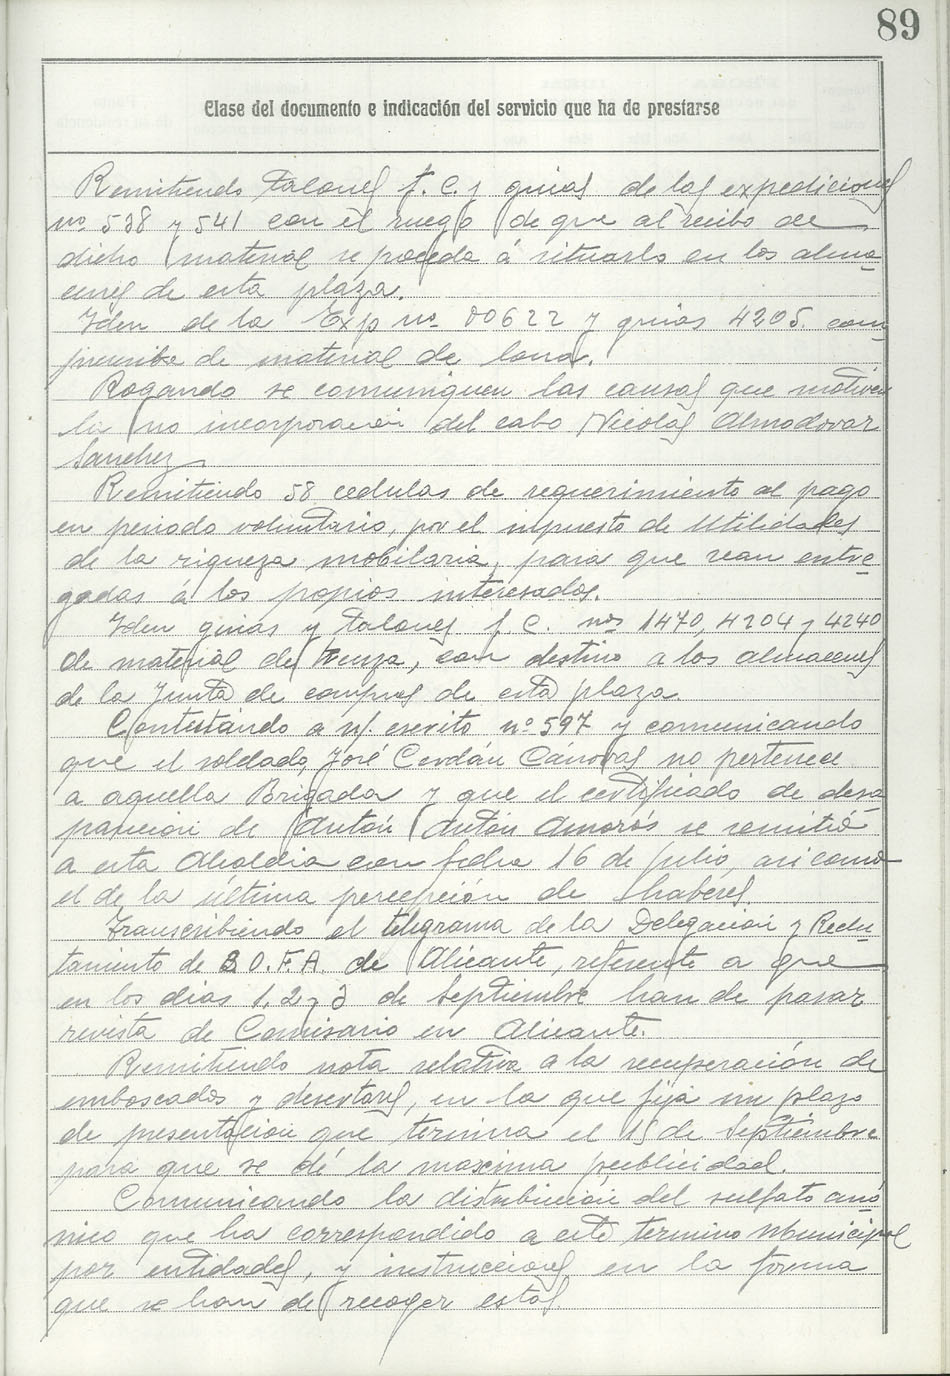 89
Clase del documento e indicación del servicio que ha de prestarse
Remitiendo talones f. C. y guias de las expediciones
nº 538 y 541 con el ruego de que al recibo de
dicho material se proceda á situarlo en los alma
cenes de esta plaza.
Iden de la Exp nº 00622 y guias 4205. com
prensiba de material de lona.
Rogando se comuniquen las causas que motiven
la no incorporación del cabo Nicolás Almodovar
Sanchez
Remitiendo 58 cedulas de requerimiento al pago
en periodo voluntario, por el impuesto de Utilidades
de la riqueza mobilaria, para que sean entre
gadas á los propios interesados.
Iden guias y talones f. C. nos 1470, 4204 y 4240
de material de, con destino a los almacenes
de la Junta de compras de esta plaza
Contestando a n/. escrito nº 597 y comunicando
que el soldado, José Cerdán Cánovas no pertenece
a aquella Brigada y que el certificado de desa
parición de Antón Antón Amorós se remitió
a esta Alcaldia con fecha 16 de julio, asi como
el de la última percepción de haberes.
Transcribiendo el telegrama de la Delegacion y Reclu
tamiento de B.O.F.A. de Alicante, referente a que
en los dias 1, 2 y 3 de Septiembre han de pasar
revista de Comisario en Alicante.
Remitiendo nota relativa a la recuperación de
emboscados y desertores, en la que fija un plazo
de presentacion que termina el 15 de Septiembre
para que se dé la maxima publicidad.
Comunicando la distribución del sulfato amó
nico que ha correspondido a este termino Municipal
por entidades, y instrucciones en la forma
que se han de recoger estos.